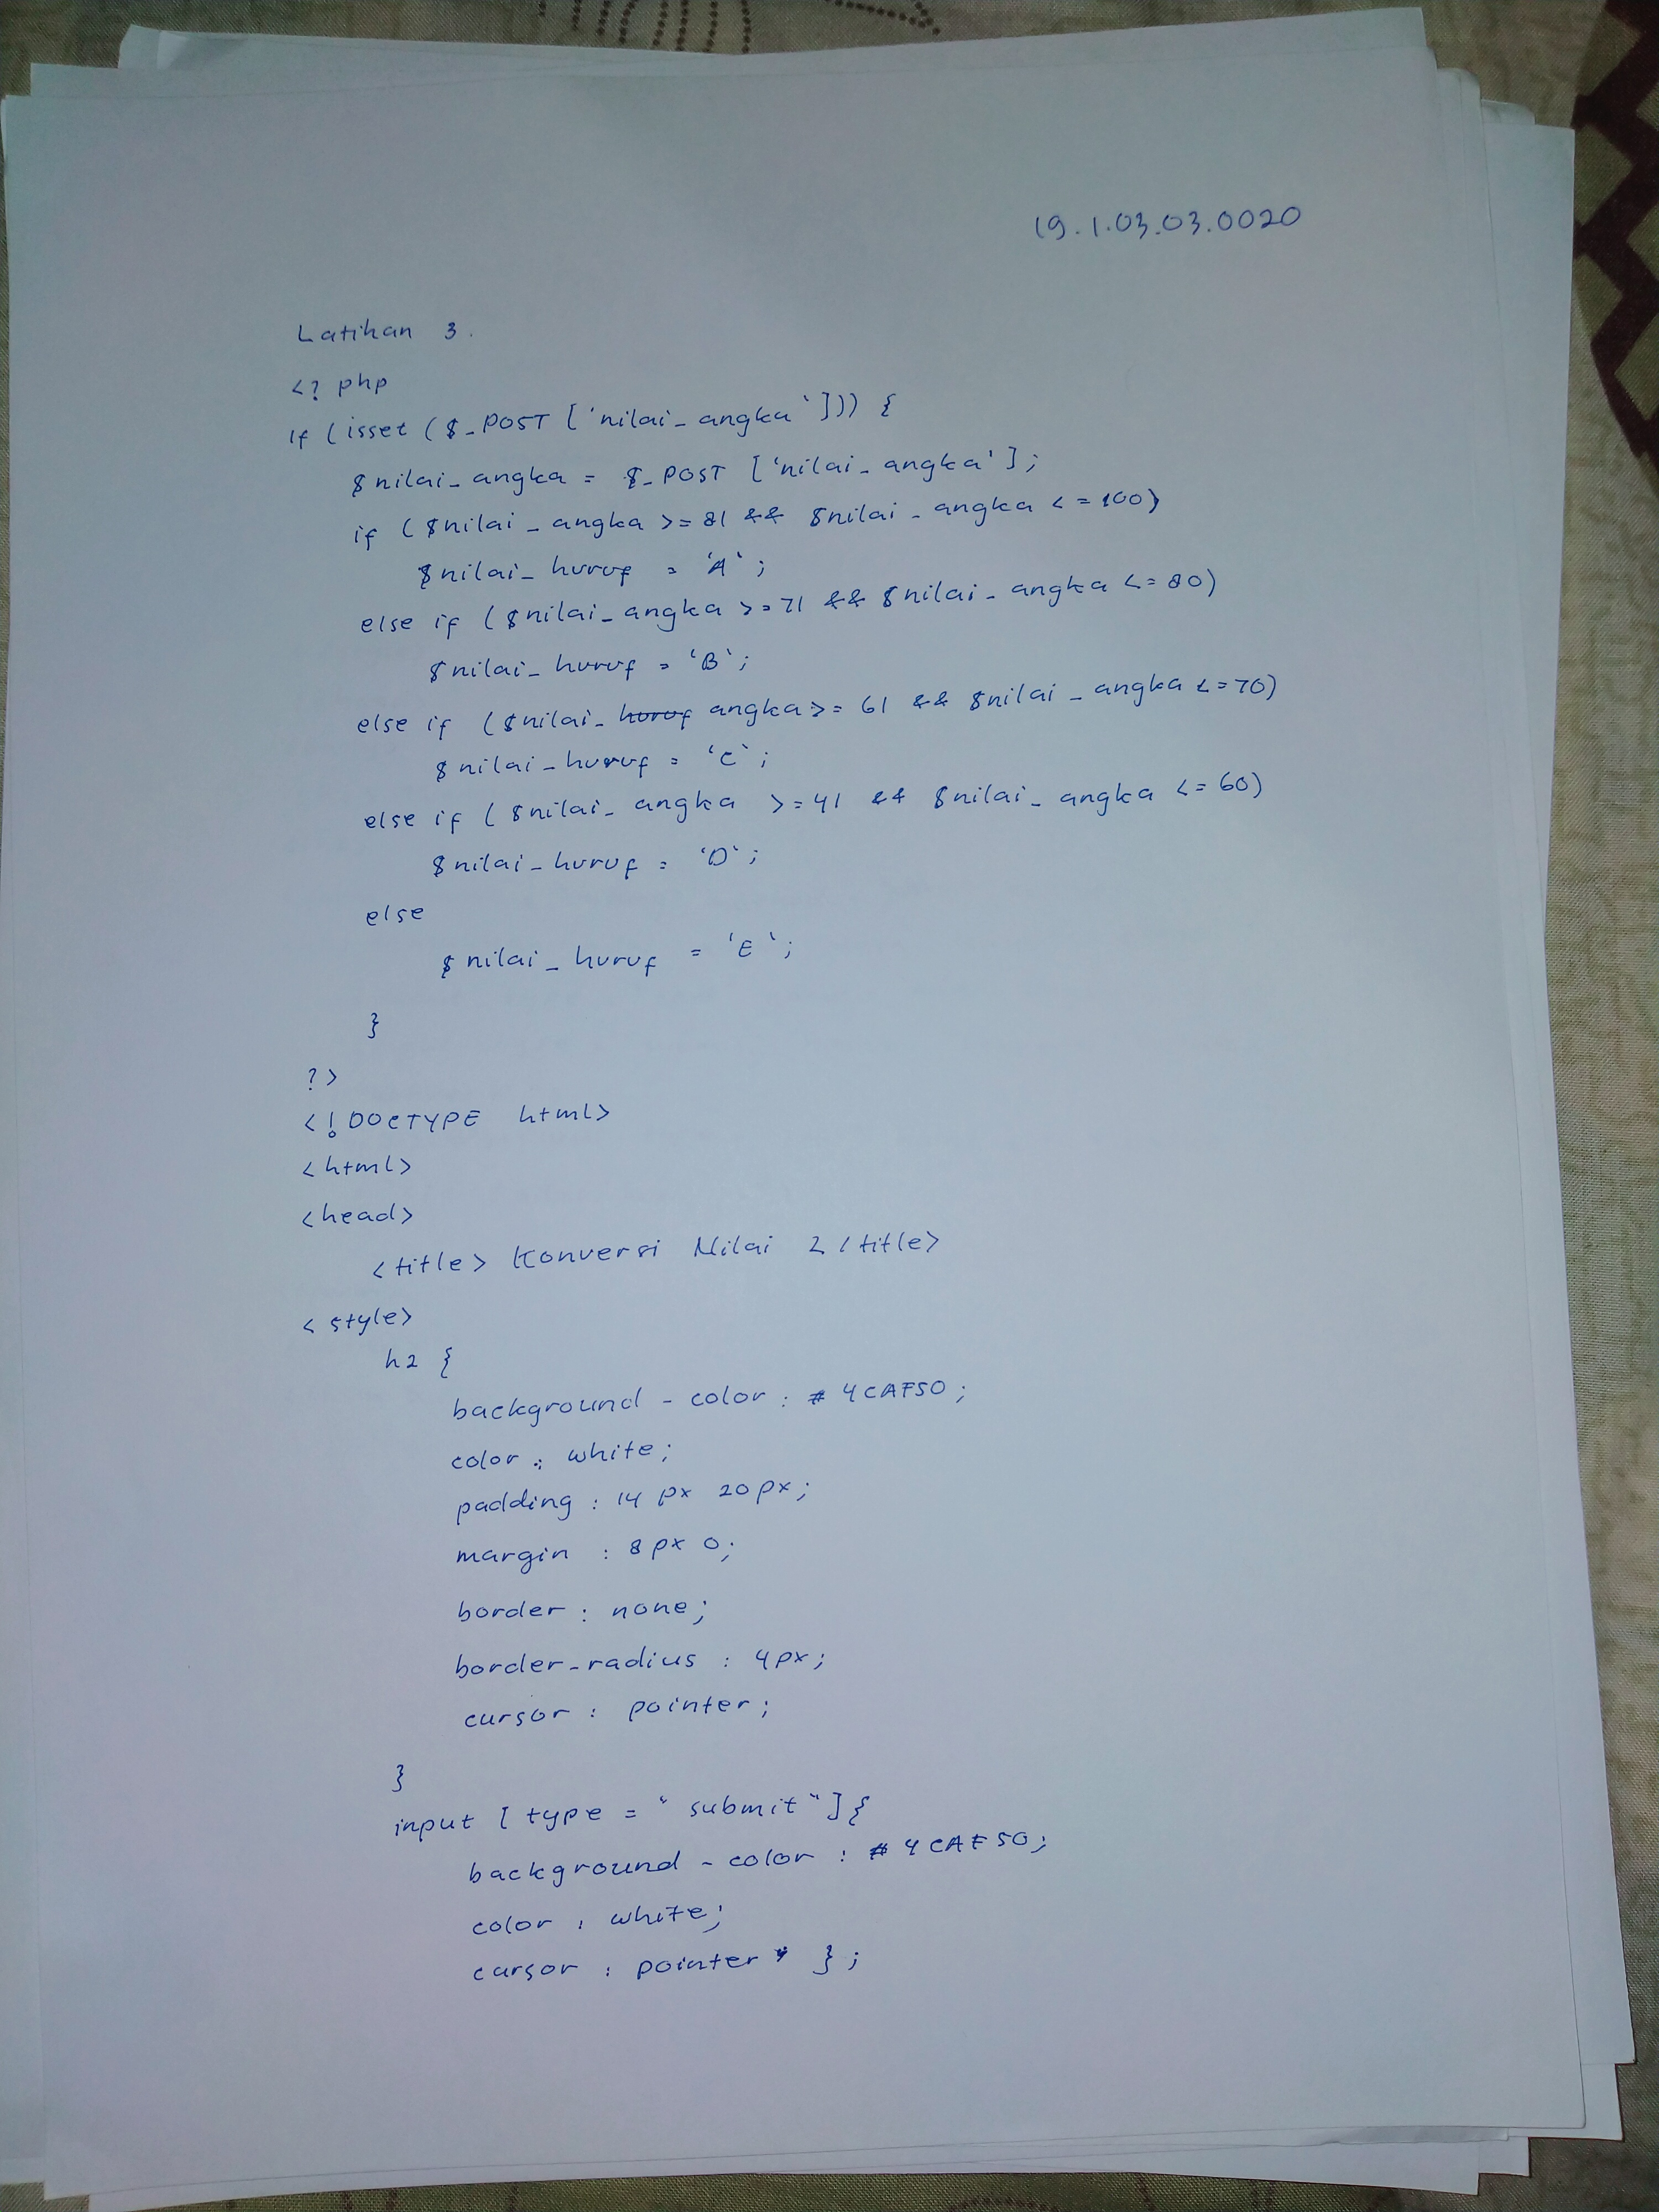 19.1.03.03.0020
Latihan 3.
<? php
if (isset ($_POST ['nilai_angka'])) {
$nilai_angka = $_POST ['nilai_angka'];
if ($nilai_angka >= 81 && $nilai_angka <= 100)
$nilai_huruf = 'A';
else if ($nilai_angka >= 71 && $nilai_angka <= 80)
$nilai_huruf = 'B';
else if ($nilai_huruf angka >= 61 && $nilai_angka <= 70)
$nilai_huruf = 'C';
else if ($nilai_angka >= 41 && $nilai_angka <= 60)
$nilai_huruf = 'D';
else
$nilai_huruf = 'E';
}
?>
<!DOCTYPE html>
<html>
<head>
<title> Konversi Nilai </title>
<style>
h2 {
background-color : #4CAF50;
color : white;
padding : 14 px 20px;
margin : 8px 0;
border : none;
border-radius : 4px;
cursor : pointer;
}
input [type = "submit"] {
background-color : #4CAF50;
color : white;
cursor : pointer };